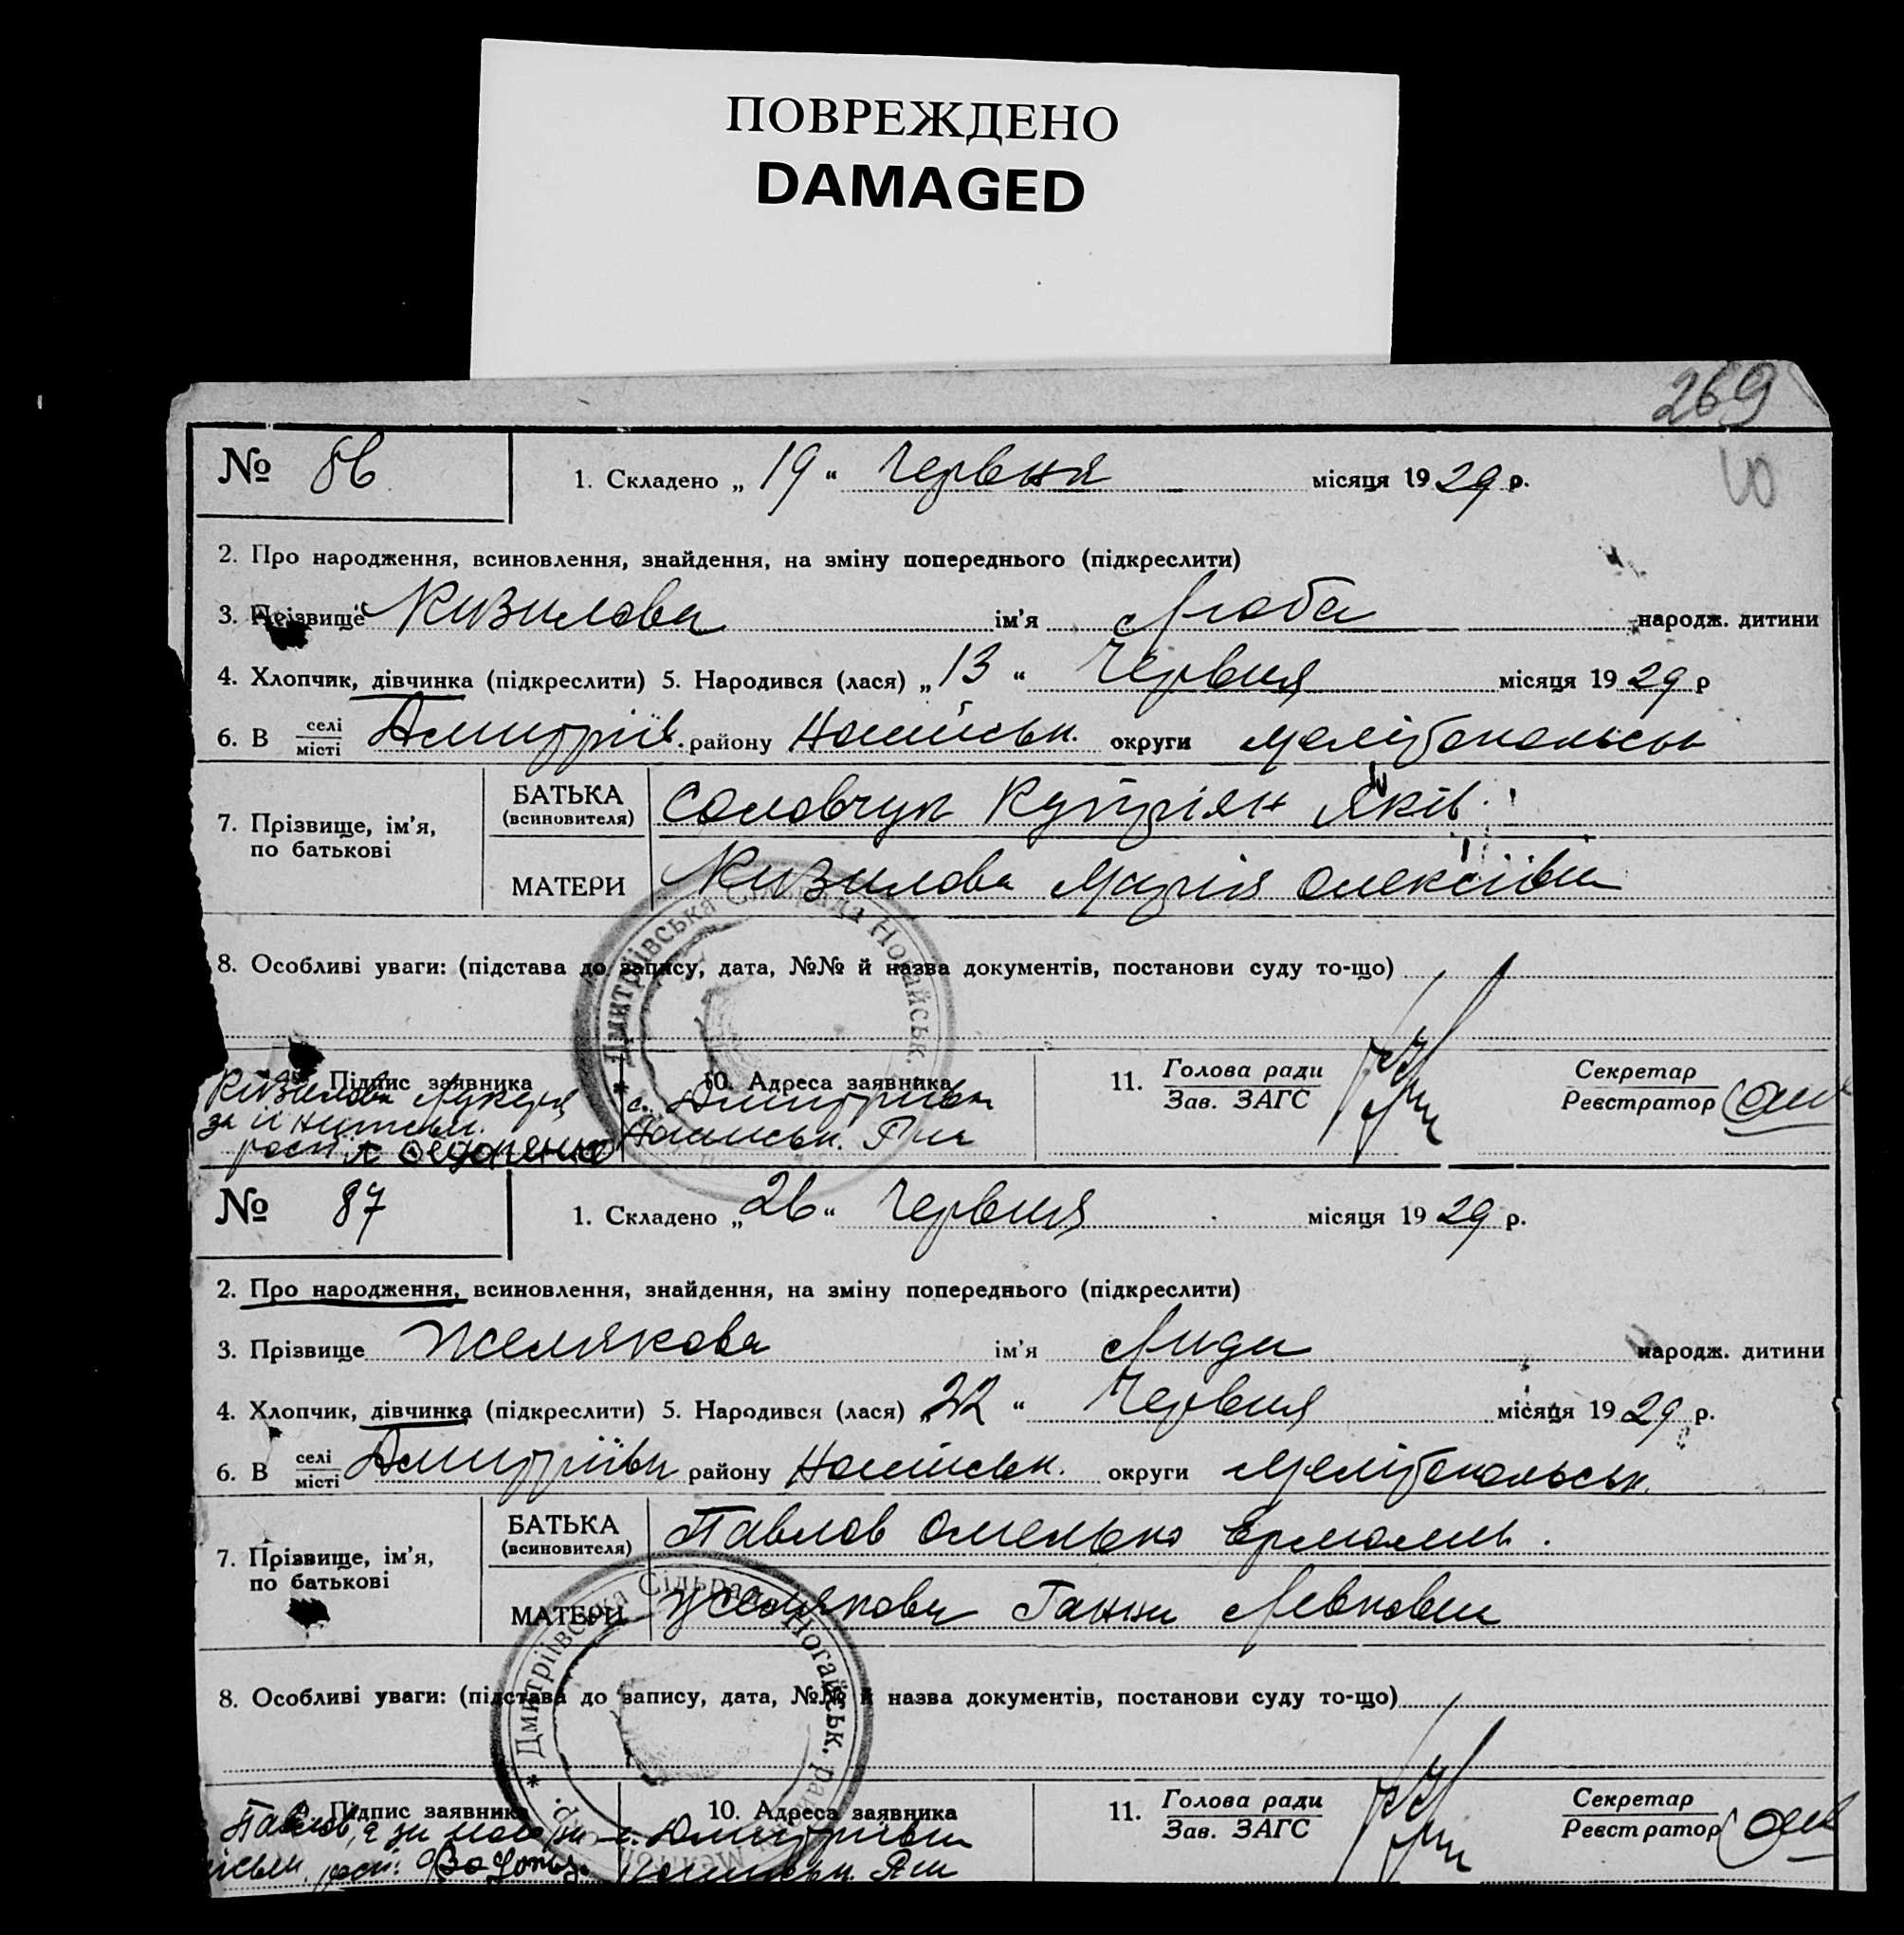 ПОВРЕЖДЕНО
DAMAGED
269
№ 86 1. Складено „ 19 “ Червня місяця 1929 р.
2. Про народження, всиновлення, знайдення, на зміну попереднього (підкреслити)
3. Прізвище Кизилова ім’я Люба народж. дитини
4. Хлопчик, дівчинка (підкреслити) 5. Народився (лася) „ 13 “ Червня місяця 1929 р
6. В селі/місті Дмитрів. району округи Мелітопольськ
7. Прізвище, ім’я, по батькові
БАТЬКА (всиновителя) Соловчук Купріян Яків.
МАТЕРИ Кизилова Марія Олексіівна
8. Особливі уваги: (підстава до запису, дата, №№ й назва документів, постанови суду то-що)
Дмитріївська Сільрада Ногайськ.
Підпис заявника 10. Адреса заявника 11. Голова ради Секретар
Зав. ЗАГС Реєстратор
Кизилова с. Дмитрівка
за неписьм.
№ 87 1. Складено „ 26 “ Червня місяця 1929 р.
2. Про народження, всиновлення, знайдення, на зміну попереднього (підкреслити)
3. Прізвище Желякова ім’я Лида народж. дитини
4. Хлопчик, дівчинка (підкреслити) 5. Народився (лася) „ 22 “ Червня місяця 1929 р.
6. В селі/місті Дмитрівка району округи Мелітопольськ.
7. Прізвище, ім’я, по батькові
БАТЬКА (всиновителя) Павлов Омелько Ермолаев.
МАТЕРИ Желякова Ганна Левковна
8. Особливі уваги: (підстава до запису, дата, №№ й назва документів, постанови суду то-що)
* Дмитріївська Сільрада Ногайськ. рай
Підпис заявника 10. Адреса заявника 11. Голова ради Секретар
Зав. ЗАГС Реєстратор
Павлов, а за с. Дмитрівка